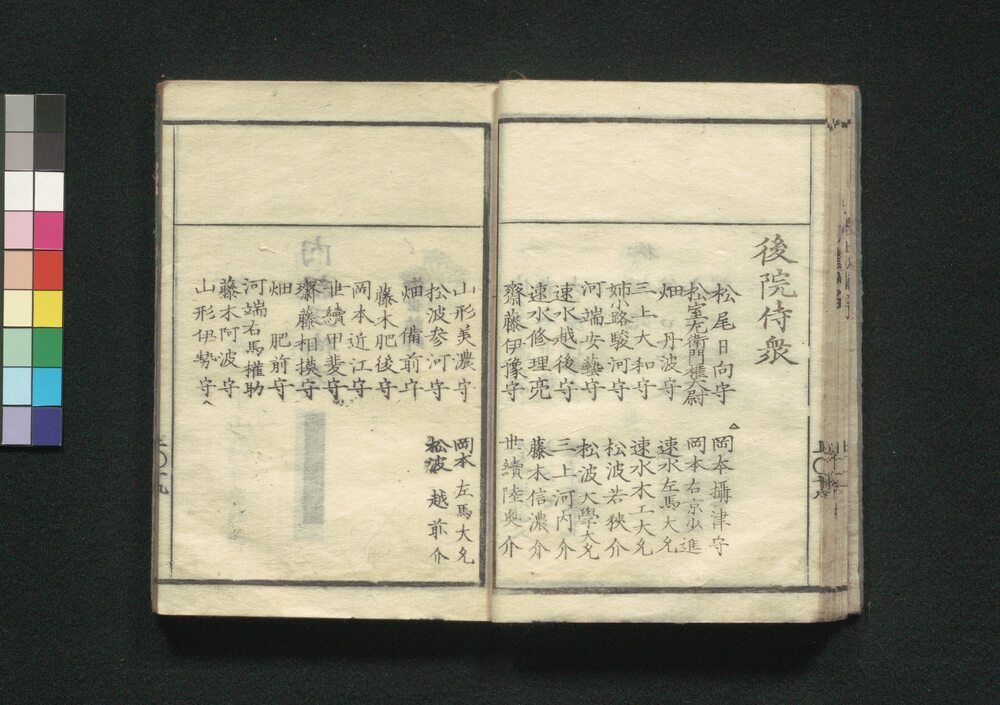 後院侍衆
松尾日向守
松室左衛門權大尉
畑丹波守
三上大和守
姉小路駿河守
河端安藝守
速水越後守
速水修理亮
齋藤伊豫守
岡本攝津守
岡本右京少進
速水左馬大允
速水木工大允
松波若狹介
松波大學大允
三上河内介
藤木信濃介
世續陸奥介
山形美濃守
松波参河守
畑備前守
藤木肥後守
岡本近江守
世續甲斐守
齋藤相摸守
畑肥前守
河端右馬權助
藤木阿波守
山形伊勢守
岡本左馬大允
松波越前介